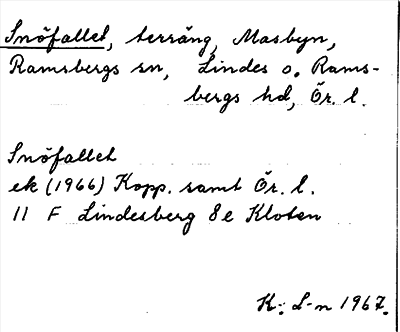 Snöfallet, terräng, Masbyn,
Ramsbergs sn, Lindes o. Rams-
bergs hd, Ör. l.
Snöfallet
ek (1966) Kopp. samt Ör. l.
11 F Lindesberg 8e Kloten
K: L-n 1967.